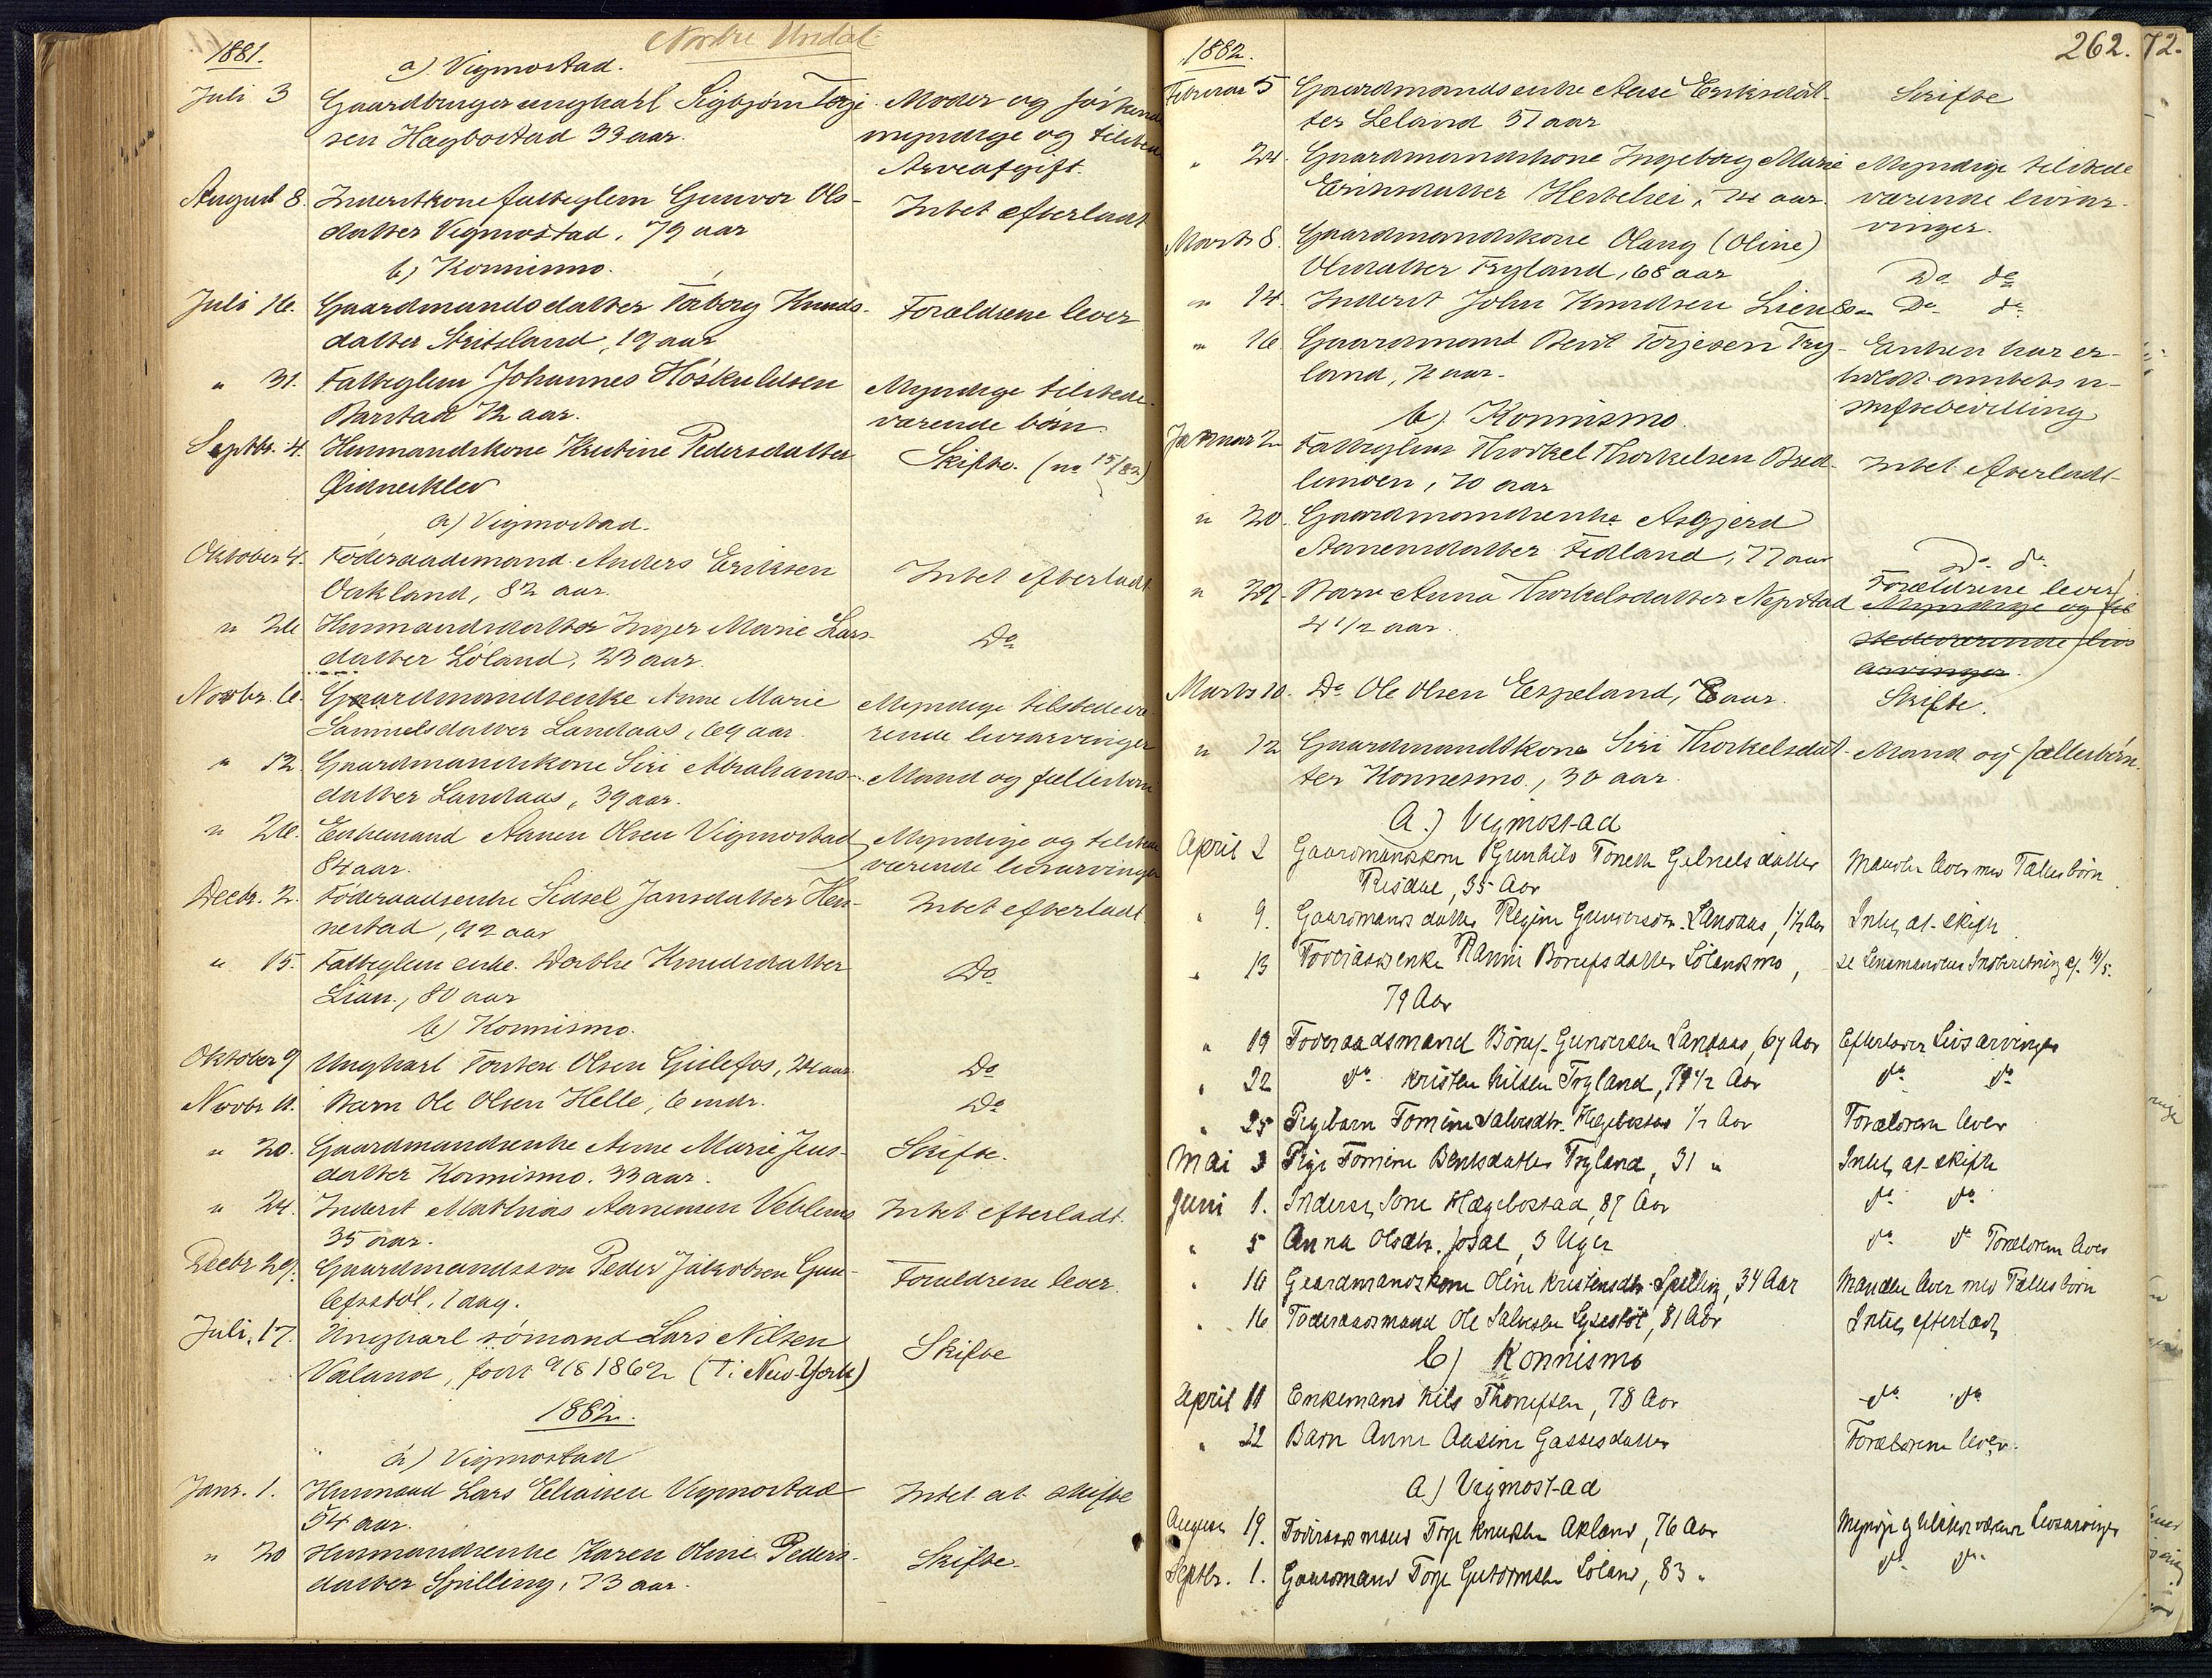 Nordre Undal
1881.
a) Vigmostad.
Juli 3 Gaardbruger ungkarl Sigbjørn Terje- Moder og
sen Hægbostad 33 aar. myndige og
Arveafgift.
August 8. Inderstkone fattiglem Gunvor Ols- Intet efterladt
datter Vigmostad, 79 aar
b) Konnismo.
Juli 16. Gaardmandsdatter Torborg Knuds- Forældrene lever
datter 19 aar
" 31. Fattiglem Johannes Höskuldsen Myndige tilstede-
Barstad 72 aar. værende børn
Septbr. 4. Husmandskone Kristine Pedersdatter Skifte. (no 15/82)
Eidnesklev
a) Vigmostad.
Oktober 4. Föderaadsmand Anders Eriksen Intet efterladt
Oakland, 82 aar.
" 26 Husmandsdatter Inger Marie Lars- Do
datter Löland, 23 aar.
Novbr. 6. Gaardmandsenke Anne Marie Myndige tilstedevæ-
Samuelsdatter Landaas, 69 aar. rende livsarvinger
" 12. Gaardmandskone Siri Abrahams- Mand og fællesbørn
datter Landaas, 39 aar.
" 26. Enkemand Aanen Olsen Vigmostad Myndige og tilstede
84 aar. værende livsarvinger
Decbr. 2. Föderaadsenke Sidsel Jansdatter Hen- Intet efterladt
nestad, 92 aar
" 15. Fattiglem enke Dorthe Knudsdatter Do
Lian, 80 aar
b) Konnismo.
Oktober 9 Ungkarl Torsten Olsen Gislefos, 24 aar Do
Novbr 11. Barn Ole Olsen Helle, 6 mdr. Do
" 20. Gaardmandsenke Anne Marie Jens- Skifte.
datter Konnismo. 33 aar.
" 24. Inderst Mathias Aanensen Veblemo Intet efterladt.
35 aar.
Decbr 29. Gaardmandssøn Peder Jakobsen Gun- Forældrene lever.
lefsstöl, 1 dag.
Juli, 17. Ungkarl sömand Lars Nilsen Skifte
Valand, født 9/8 1862 (i New-York)
1882.
a) Vigmostad
Janr. 1. Husmand Lars Eliassen Vigmostad Intet at skifte
54 aar.
" 20 Husmandsenke Karen Oline Peders- Skifte.
datter Spilling, 73 aar.
1882. 262. 72.
Februar 5 Gaardmandsenke Aase Eriksdat- Skifte
ter Leland 57 aar
" 24. Gaardmandskone Ingeborg Marie Myndige tilstede
Eriksdatter 74 aar. værende livsar-
vinger.
Marts 8. Gaardmandskone Olaug (Oline)
Olsdatter Tryland, 68 aar Do do
" 14. Inderst John Knudsen Lien Do do
" 16 Gaardmand Berit Torjesen Try- Enken har er-
land, 72 aar. holdt
skiftebevilling
b) Konnismo
Januar 2 Fattiglem Thorkel Thorkelsen Bred- Intet efterladt
limoen, 70 aar
" 20. Gaardmandsenke Asgjerd
Aanensdatter Fidland, 77 aar Do do
" 29. Barn Anna Thorkelsdatter Nepstad Forældrene lever
4 1/2 aar. Myndige og til
stedeværende livs
arvinger.
Marts 10. Do Ole Olsen Espeland, 8 aar. Skifte.
" 12 Gaardmandskone Siri Thorkelsdat- Mand og fællesbørn.
ter Konnesmo, 30 aar
a.) Vigmostad
April 2 Gaardmandskone Gunhild Tonette Gabrielsdatter Manden lever med Fællesbörn
Risdal, 35 Aar
" 9. Gaardmands datter Regine Gundersdr. Landaas, 1 1/2 Aar Intet at skifte
" 13 Foderaadsenke Ranni Börufsdatter Lölandsmo, se Lensmandens Indberetning af 19/5.
79 Aar
" 19 Foderaadsmand Böruf Gundersen Landaas, 67 Aar Efterlader Livsarvinger
" 22 do Kristen Nilsen Tryland, 79 1/2 Aar do do
" 25 Pigebarn Tomine Salvesdtr. Hægebostad 1/2 Aar Forældrene lever
Mai 3 Pige Tomine Bentsdatter Tryland, 31 " Intet at skifte
Juni 1. Inderst Hægebostad, 87 Aar do do
" 5 Anna Olsdtr. Josdal, 3 Uger do do Forældrene lever
" 10 Gaardmandskone Oline Kristensdtr. Spilling, 34 Aar Manden lever med Fællesbörn
" 16 Foderaadsmand Ole Salvesen Lysestöl, 81 Aar Intet efterladt
b) Konnismo
April 11 Enkemand Nils Thorufsen, 78 Aar do do
" 22 Barn Anne Aasine Gassesdatter Forældrene lever.
a) Vigmostad
August 19. Foderaadsmand Torje Knudsen Akland, 76 Aar Myndige og tilstedeværende Livsarvinger
Septbr. 1. Gaardmand Torje Guttormsen Löland, 83 " do do